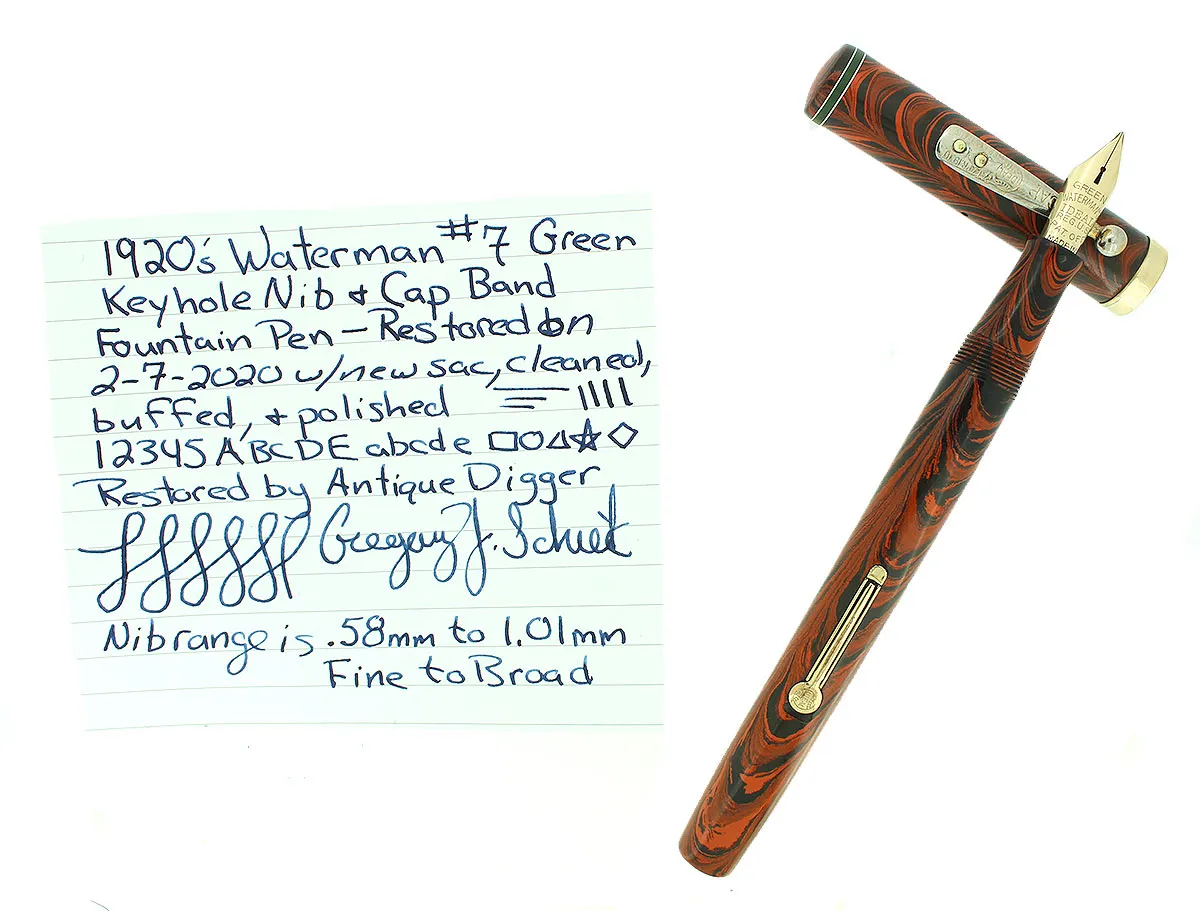 1920's Waterman #7 Green
Keyhole Nib & Cap Band
Fountain Pen - Restored on
2-7-2020 w/new sac, cleaned,
buffed, & polished
12345 ABCDE abcde
Restored by Antique Digger
Gregory J.
Nib range is .58mm to 1.01mm
Fine to Broad
GREEN
WATERMAN
IDEAL
REG US
PAT OF